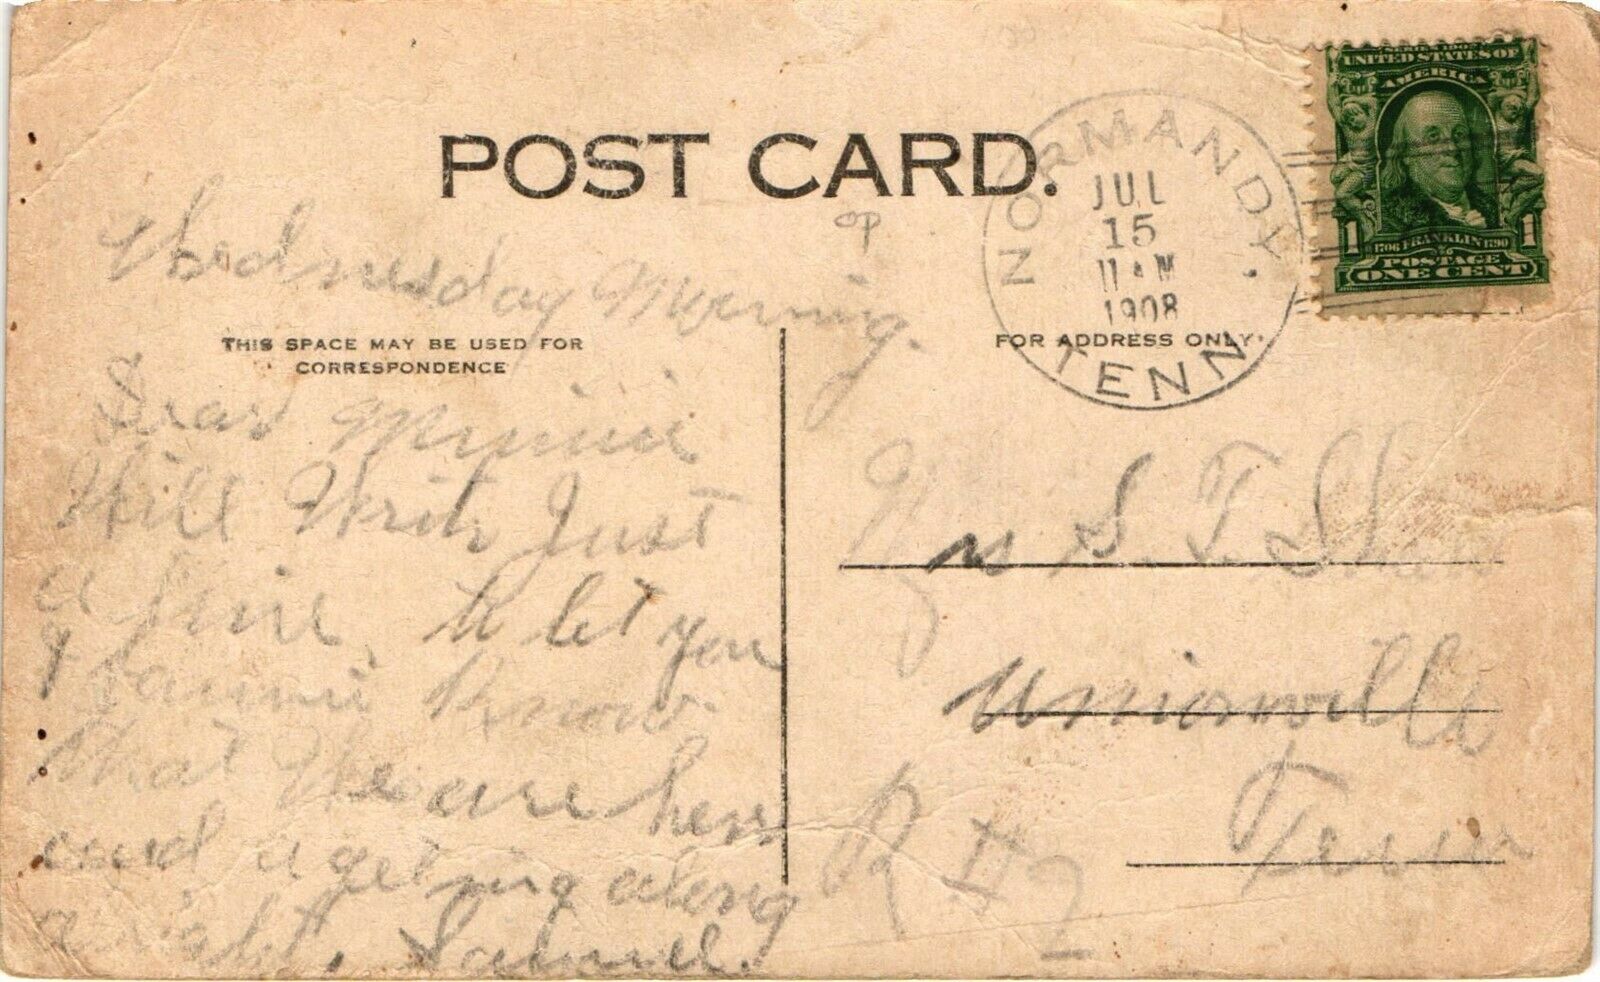 POST CARD.
NORMANDY,
TENN
JUL
15
11 AM
1908
SERIES 1902
UNITED STATES OF
AMERICA
1 1706 FRANKLIN 1790 1
POSTAGE
ONE CENT
op
Wednesday Morning.
THIS SPACE MAY BE USED FOR
CORRESPONDENCE
Dear Minnie
Will Write Just
a line, to let you
& Fannie Know
that We are here
and a geting along
alright, Samuel.
FOR ADDRESS ONLY.
Mrs S. T. Shaw
Unionville
Tenn
R # 2